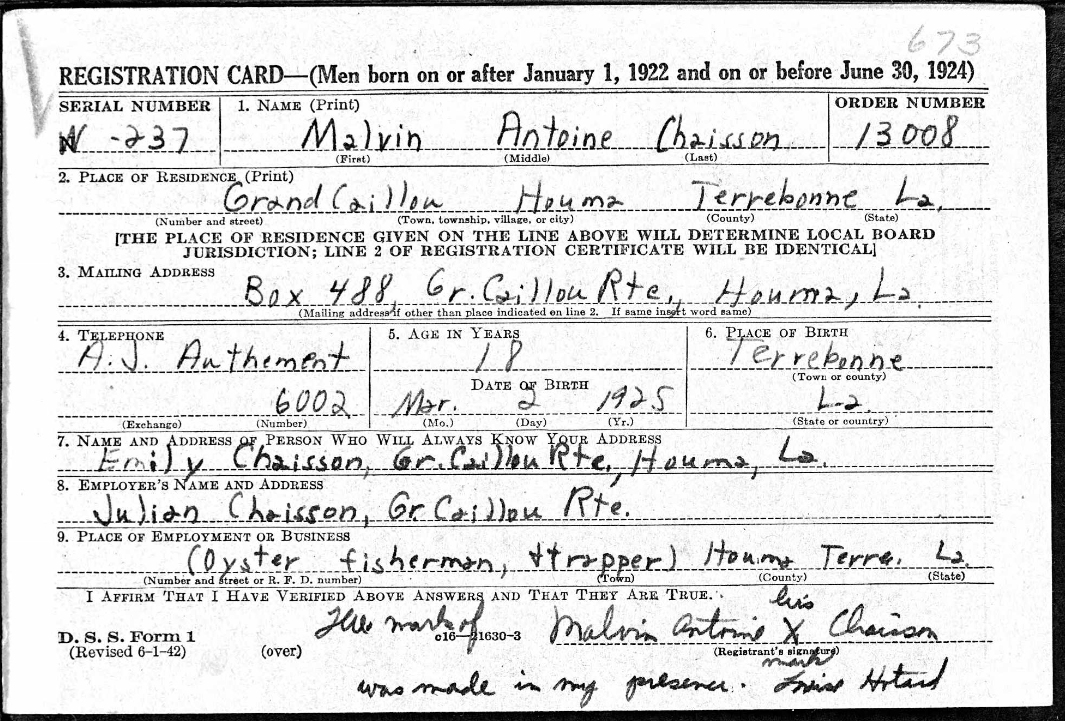 673
REGISTRATION CARD—(Men born on or after January 1, 1922 and on or before June 30, 1924)
SERIAL NUMBER 1. NAME (Print) ORDER NUMBER
N -237 Malvin Antoine Chaisson 13008
(First) (Middle) (Last)
2. PLACE OF RESIDENCE (Print)
Grand Caillou Houma Terrebonne La.
(Number and street) (Town, township, village, or city) (County) (State)
[THE PLACE OF RESIDENCE GIVEN ON THE LINE ABOVE WILL DETERMINE LOCAL BOARD
JURISDICTION; LINE 2 OF REGISTRATION CERTIFICATE WILL BE IDENTICAL]
3. MAILING ADDRESS
Box 488, Gr. Caillou Rte., Houma, La.
(Mailing address if other than place indicated on line 2. If same insert word same)
4. TELEPHONE 5. AGE IN YEARS 6. PLACE OF BIRTH
A. J. Authement 18 Terrebonne
(Town or county)
DATE OF BIRTH
6002 Mar. 2 1925 La.
(Exchange) (Number) (Mo.) (Day) (Yr.) (State or country)
7. NAME AND ADDRESS OF PERSON WHO WILL ALWAYS KNOW YOUR ADDRESS
Emily Chaisson, Gr. Caillou Rte, Houma, La.
8. EMPLOYER'S NAME AND ADDRESS
Julian Chaisson, Gr Caillou Rte.
9. PLACE OF EMPLOYMENT OR BUSINESS
(Oyster fisherman, & trapper) Houma Terre. La.
(Number and street or R. F. D. number) (Town) (County) (State)
I AFFIRM THAT I HAVE VERIFIED ABOVE ANSWERS AND THAT THEY ARE TRUE.
his
The mark of Malvin Antoine X Chaisson
D. S. S. Form 1 c16—21630-3
(Revised 6-1-42) (over) (Registrant's signature)
mark
was made in my presence. Louise Hotard